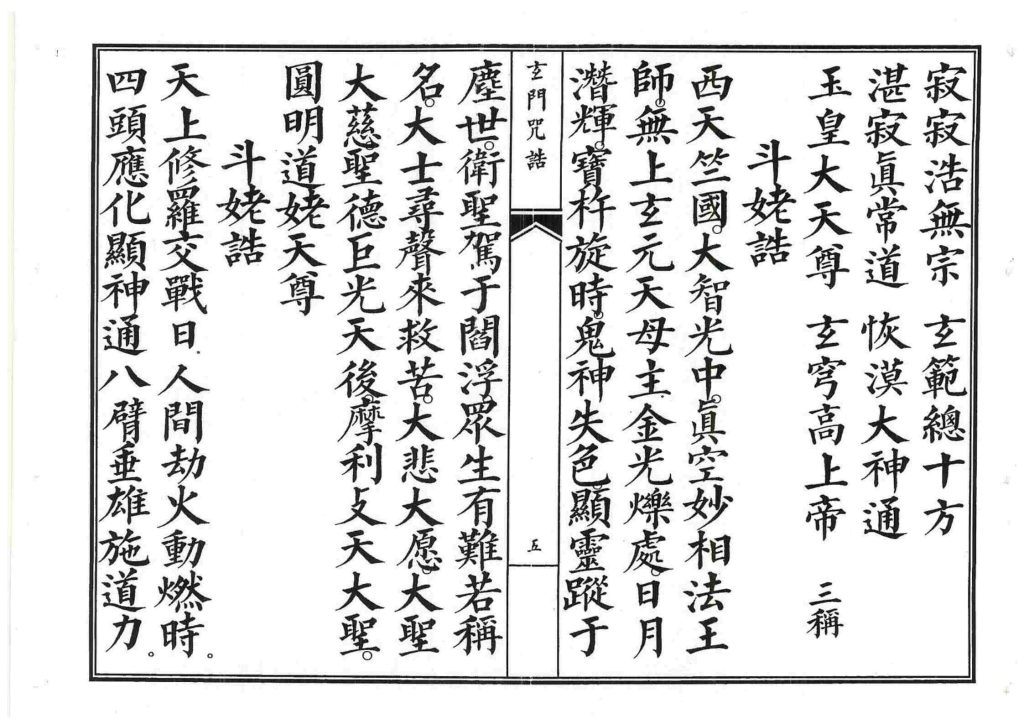 寂寂浩無宗　玄範總十方
湛寂眞常道　恢漠大神通
玉皇大天尊　玄穹高上帝　三稱
斗姥誥
西天竺國。大智光中。眞空妙相法王
師。無上玄元天母主。金光爍處。日月
潛輝。寶杵旋時。鬼神失色。顯靈蹤于
玄門咒誥
五
塵世。衛聖駕于閻浮。眾生有難若稱
名。大士尋聲來救苦。大悲大愿。大聖
大慈。聖德巨光天後。摩利攴天大聖。
圓明道姥天尊
斗姥誥
天上修羅交戰日.人間劫火動燃時。
四頭應化顯神通八臂垂雄施道力。